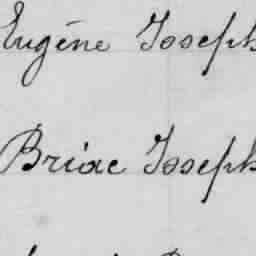 Eugène Joseph
Briac Joseph